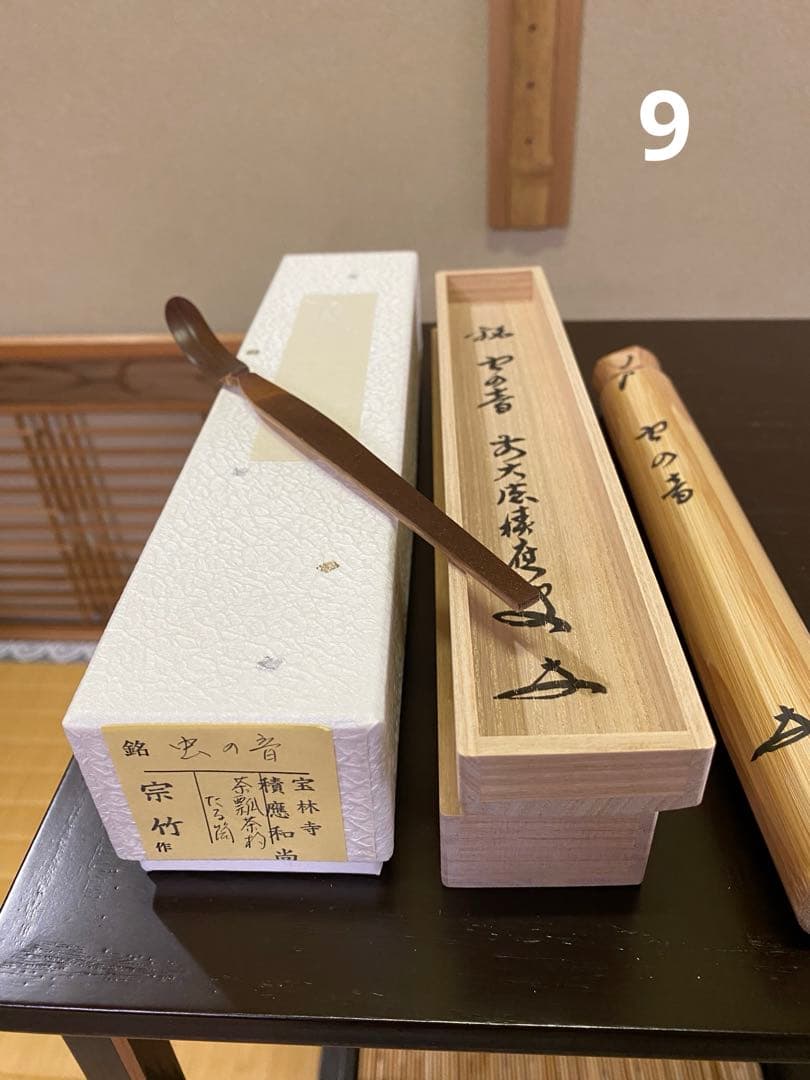 9
銘 虫の音
宝林寺
積應和尚
茶瓢茶杓
たる筒
宗竹作
銘 虫の音 前大徳積應叟
虫の音